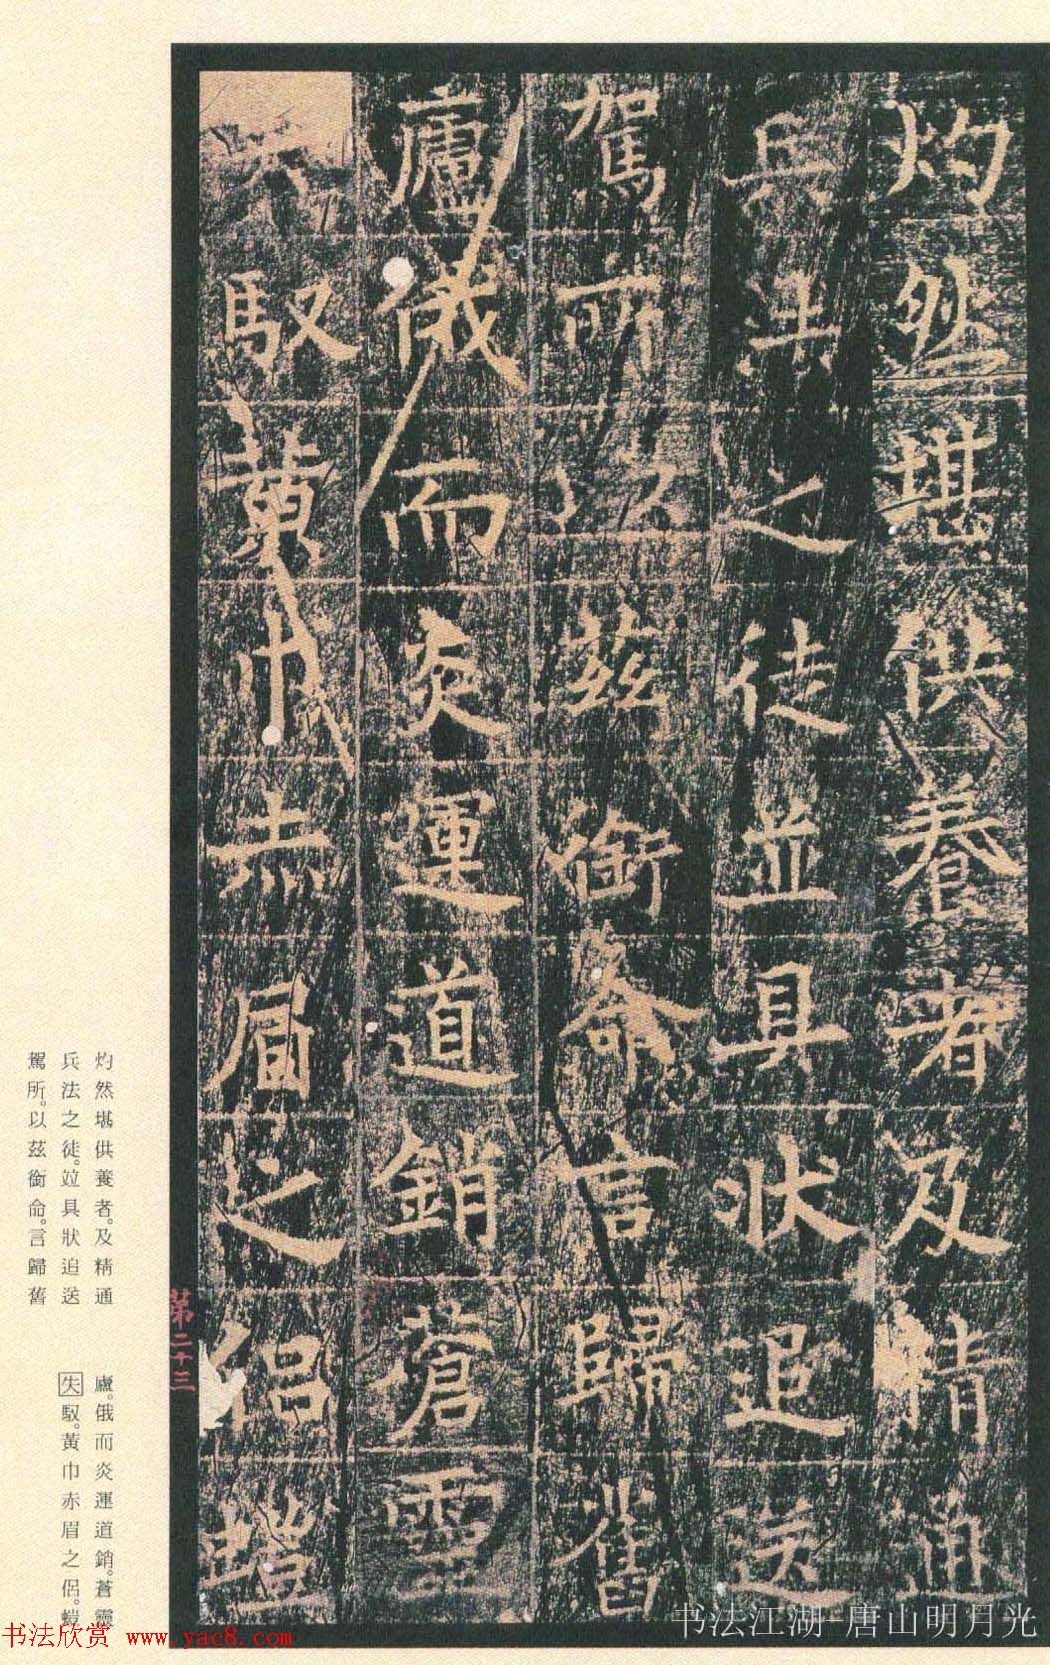 灼然堪供養者及精通
兵法之徒並具狀追送
駕所以茲銜命言歸舊
廬俄而炎運道銷蒼靈
失馭黃巾赤眉之侶螘
灼然堪供養者。及精通
兵法之徒。竝具狀追送
駕所。以茲銜命。言歸舊
廬。俄而炎運道銷。蒼靈
失馭。黃巾赤眉之侶。螘
第二十三
书法江湖-唐山明月光
书法欣赏 www.yac8.com